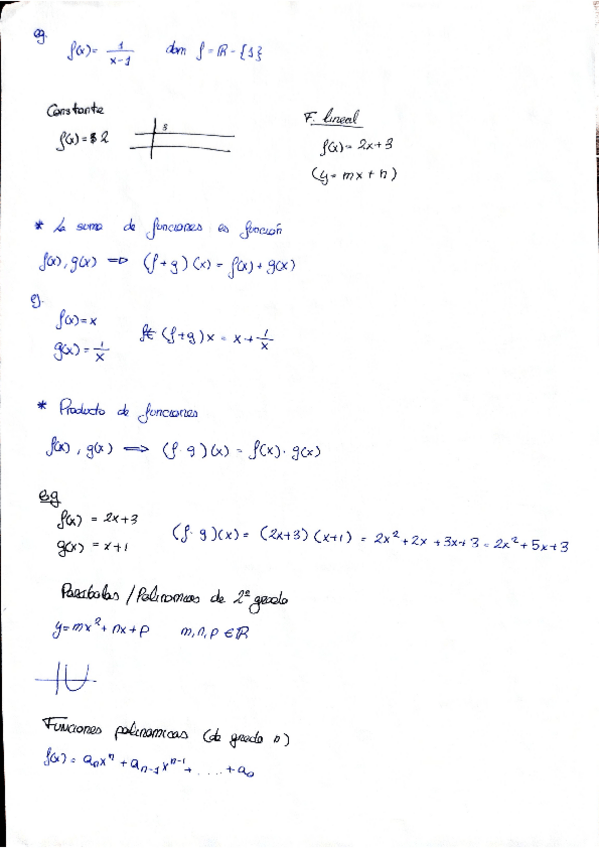 eg.
f(x)= 1/(x-1)   dom f = ℝ - {1}
Constante
f(x) = 2
F. lineal
f(x) = 2x+3
(y = mx + n)
* La suma de funciones es función
f(x), g(x) ⇒ (f+g)(x) = f(x) + g(x)
ej.
f(x) = x
g(x) = 1/x
(f+g)x = x + 1/x
* Producto de funciones
f(x), g(x) ⟹ (f·g)(x) = f(x)·g(x)
eg
f(x) = 2x+3
g(x) = x+1
(f·g)(x) = (2x+3)(x+1) = 2x²+2x+3x+3 = 2x²+5x+3
Parabolas / Polinomios de 2º grado
y = mx² + nx + p   m, n, p ∈ ℝ
Funciones polinomicas (de grado n)
f(x) = aₙxⁿ + aₙ₋₁xⁿ⁻¹ + ..... + a₀